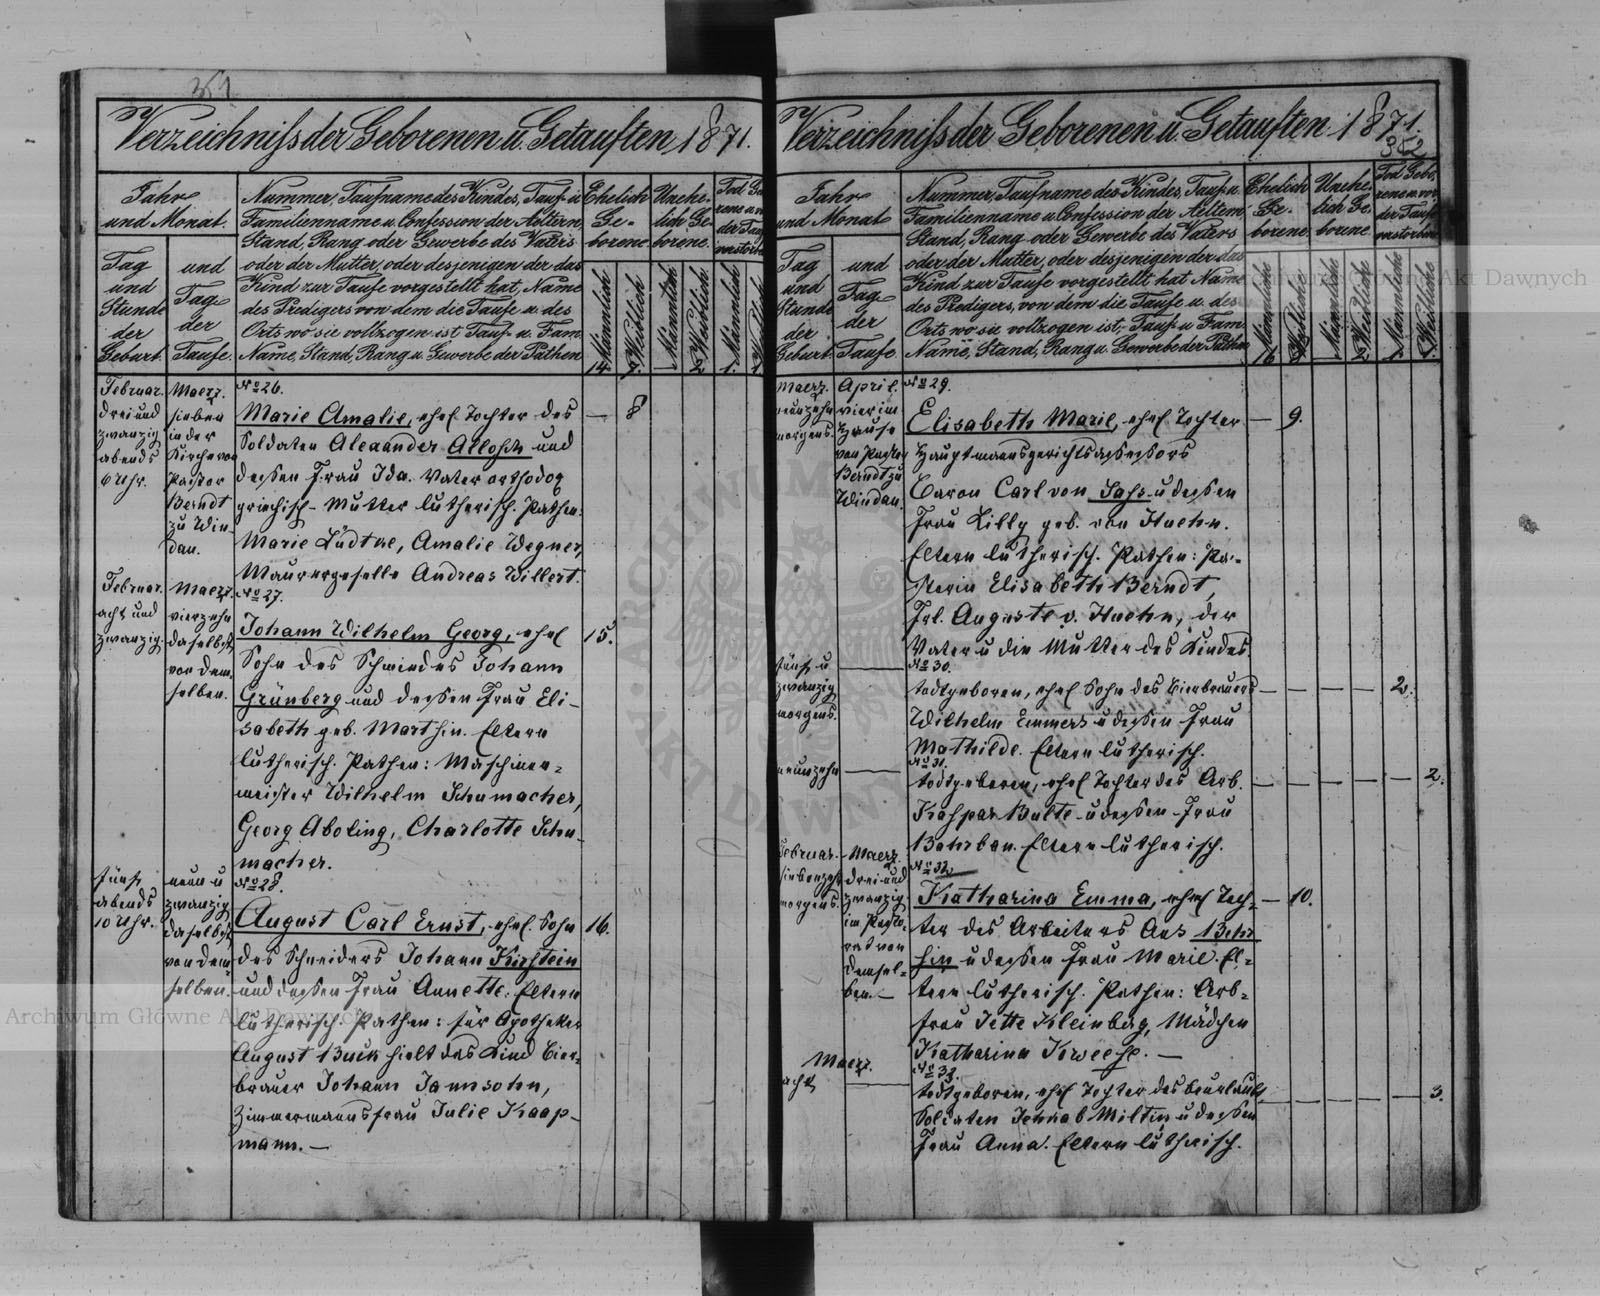 351
Verzeichniss der Geborenen u. Getauften 1871.
Jahr
und Monat.
Tag
und
Stunde
der
Geburt.
und
Tag
der
Taufe.
Nummer, Taufname des Kindes, Tauf- u.
Familienname u. Confession der Aeltern,
Stand, Rang oder Gewerbe des Vaters
oder der Mutter, oder desjenigen der das
Kind zur Taufe vorgestellt hat, Name
des Predigers von dem die Taufe u. des
Orts wo sie vollzogen ist, Tauf- u. Fam.
Name, Stand, Rang u. Gewerbe der Pathen
Ehelich
Ge-
borene
Unehe-
lich Ge-
borene.
Männlich
Weiblich
Männlich
Weiblich
Männlich
14.
7.
1.
Februar.
drei und
zwanzig
abends
6 Uhr.
Maerz.
sieben
in der
Kirche von
Pastor
Berndt
zu Win-
dau.
No 26.
Marie Amalie, ehel Tochter des — 8
Soldaten Alexander Allosch und
dessen Frau Ida. Vater orthodox
griechisch - Mutter lutherisch. Pathen:
Marie Lüdtke, Amalie Wegner,
Maurergeselle Andreas Willert.
Februar.
acht und
zwanzig.
Maerz.
vierzehn
daselbst
von dem-
selben.
No 27.
Johann Wilhelm Georg, ehel 15.
Sohn des Schmiedes Johann
Grünberg und dessen Frau Eli-
sabeth geb. Marthin. Eltern
lutherisch. Pathen: Maschinen-
meister Wilhelm Schumacher,
Georg Aboling, Charlotte Schu-
macher.
fünf
abends
10 Uhr.
neun u
zwanzig
daselbst
von dem-
selben.
No 28.
August Carl Ernst, ehel. Sohn 16.
des Schneiders Johann Kirstein
und dessen Frau Annette. Eltern
lutherisch. Pathen: für Apotheker
August Buck hielt das Kind Bier-
brauer Johann Jannsohn,
Zimmermannsfrau Julie Knap-
mann. —
Verzeichniss der Geborenen u. Getauften. 1871.
352
Jahr
und Monat.
Tag
und
Stunde
der
Geburt.
und
Tag
der
Taufe.
Nummer, Taufname des Kindes, Tauf- u.
Familienname u. Confession der Aeltern
Stand, Rang oder Gewerbe des Vaters
oder der Mutter, oder desjenigen der das
Kind zur Taufe vorgestellt hat Name
des Predigers, von dem die Taufe u. des
Orts wo sie vollzogen ist, Tauf- u. Fam.
Name, Stand, Rang u. Gewerbe der Pathen
Ehelich
Ge-
borene
Unehe-
lich Ge-
borene.
Männliche
Weibliche
Männliche
Weibliche
Männliche
Weibliche
16
1.
1.
Maerz.
neunzehn
morgens.
April.
vier im
Hause
von Pastor
Berndt zu
Windau.
No 29.
Elisabeth Marie, ehel Tochter — 9.
Hauptmannsgerichtsassessors
Baron Carl von Sass u dessen
Frau Lilly geb. von Huehn.
Eltern lutherisch. Pathen: Pa-
storin Elisabeth Berndt,
Frl. Auguste v. Huehn, der
Vater u die Mutter des Kindes.
fünf u
zwanzig
morgens.
No 30.
todtgeboren, ehel Sohn des Bierbrauers — — — — 2.
Wilhelm Emmers u dessen Frau
Mathilde. Eltern lutherisch.
neunzehn
No 31.
todtgeboren, ehel Tochter des Arb. — — — — — 2.
Kaspar Bulte u dessen Frau
Barbau. Eltern lutherisch.
Februar.
siebenzehn
morgens.
Maerz.
drei und
zwanzig
im Pasto-
rat von
demsel-
ben. —
No 32
Katharina Emma, ehel Toch- — 10.
ter des Arbeiters Ans Behr
sin u dessen Frau Marie. El-
tern lutherisch. Pathen: Arb-
frau Jette Kleinberg, Mädchen
Katharina Kweese. —
Maerz.
acht
No 33.
todtgeboren, ehel Tochter des beurlaubt. — — — — — 3.
Soldaten Jannab Miltin u dessen
Frau Anna. Eltern lutherisch.
ARCHIWUM GŁÓWNE AKT DAWNYCH
Archiwum Główne Akt Dawnych
Archiwum Główne Akt Dawnych